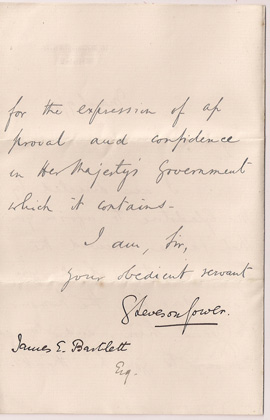 for the expression of ap
proval and confidence
in Her Majesty's Government
which it contains-
I am, Sir,
your obedient servant
G Leveson Gower.
James E. Bartlett
Esq-